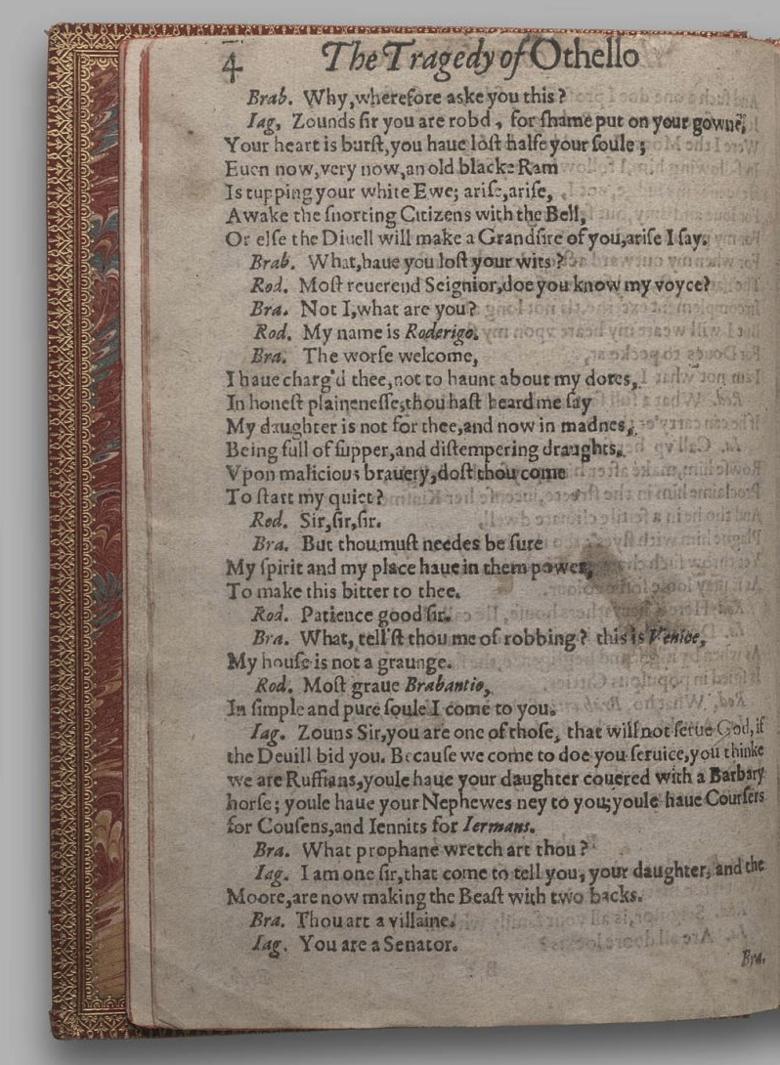 4 The Tragedy of Othello
Brab. Why, wherefore aske you this?
Iag, Zounds ſir you are robd, for ſhame put on your gowne;
Your heart is burſt, you haue loſt halfe your ſoule;
Euen now, very now, an old blacke Ram
Is tupping your white Ewe; ariſe, ariſe,
Awake the ſnorting Citizens with the Bell,
Or elſe the Diuell will make a Grandſire of you, ariſe I ſay.
Brab. What, haue you loſt your wits?
Rod. Moſt reuerend Seignior, doe you know my voyce?
Bra. Not I, what are you?
Rod. My name is Roderigo.
Bra. The worſe welcome,
I haue charg'd thee, not to haunt about my dores,
In honeſt plaineneſſe, thou haſt heard me ſay
My daughter is not for thee, and now in madnes,
Being full of ſupper, and diſtempering draughts,
Vpon malicious brauery, doſt thou come
To ſtart my quiet?
Rod. Sir, ſir, ſir.
Bra. But thou muſt needes be ſure
My ſpirit and my place haue in them power,
To make this bitter to thee.
Rod. Patience good ſir.
Bra. What, tell'ſt thou me of robbing? this is Venice,
My houſe is not a graunge.
Rod. Moſt graue Brabantio,
In ſimple and pure ſoule I come to you.
Iag. Zouns Sir, you are one of thoſe, that will not ſerue God, if
the Deuill bid you. Becauſe we come to doe you ſeruice, you thinke
we are Ruffians, youle haue your daughter couered with a Barbary
horſe; youle haue your Nephewes ney to you; youle haue Courſers
for Couſens, and Iennits for Iermans.
Bra. What prophane wretch art thou?
Iag. I am one ſir, that come to tell you, your daughter, and the
Moore, are now making the Beaſt with two backs.
Bra. Thou art a villaine.
Iag. You are a Senator.
Bra.